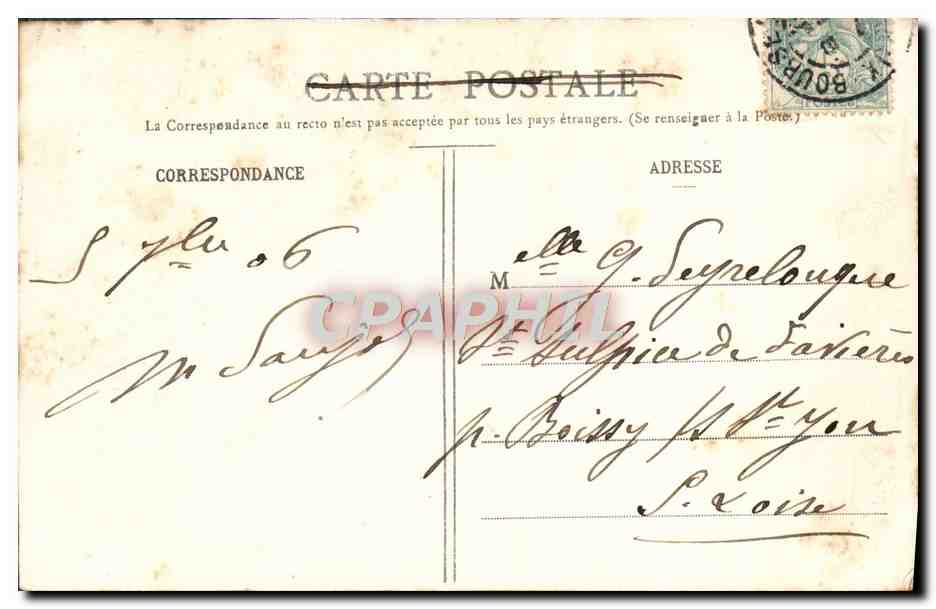 CARTE POSTALE
La Correspondance au recto n'est pas acceptée par tous les pays étrangers. (Se renseigner à la Poste.)
CORRESPONDANCE
ADRESSE
5 7bre 06
M elle G. Seyrelongue
St Sulpice de Favières
p. Boissy s/s St Yon
S. & Oise
BOURSE
POSTES
CPAPHIL